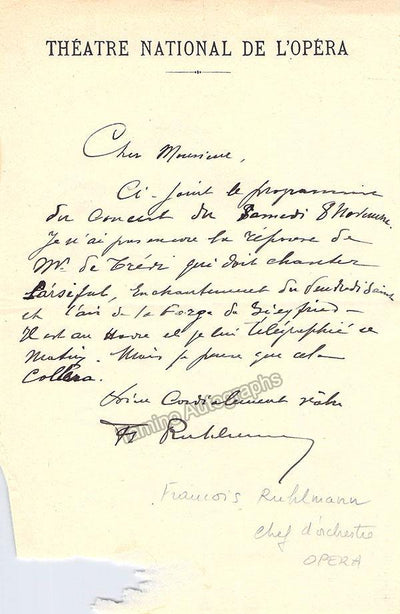 THÉATRE NATIONAL DE L'OPÉRA
Cher Monsieur,
Ci-joint le programme
du concert du Samedi 8 Novembre.
Je n'ai pas encore la réponse de
Mr. de Trévi qui doit chanter
Parsifal, Enchantement du Vendredi Saint
et l'air de la Forge de Siegfried –
Il est au Havre et je lui télégraphie ce
Matin. Mais je pense que cela
Collera.
Bien Cordialement vôtre
Fr Ruhlmann
Tamino Autographs
François Ruhlmann
Chef d'orchestre
OPERA